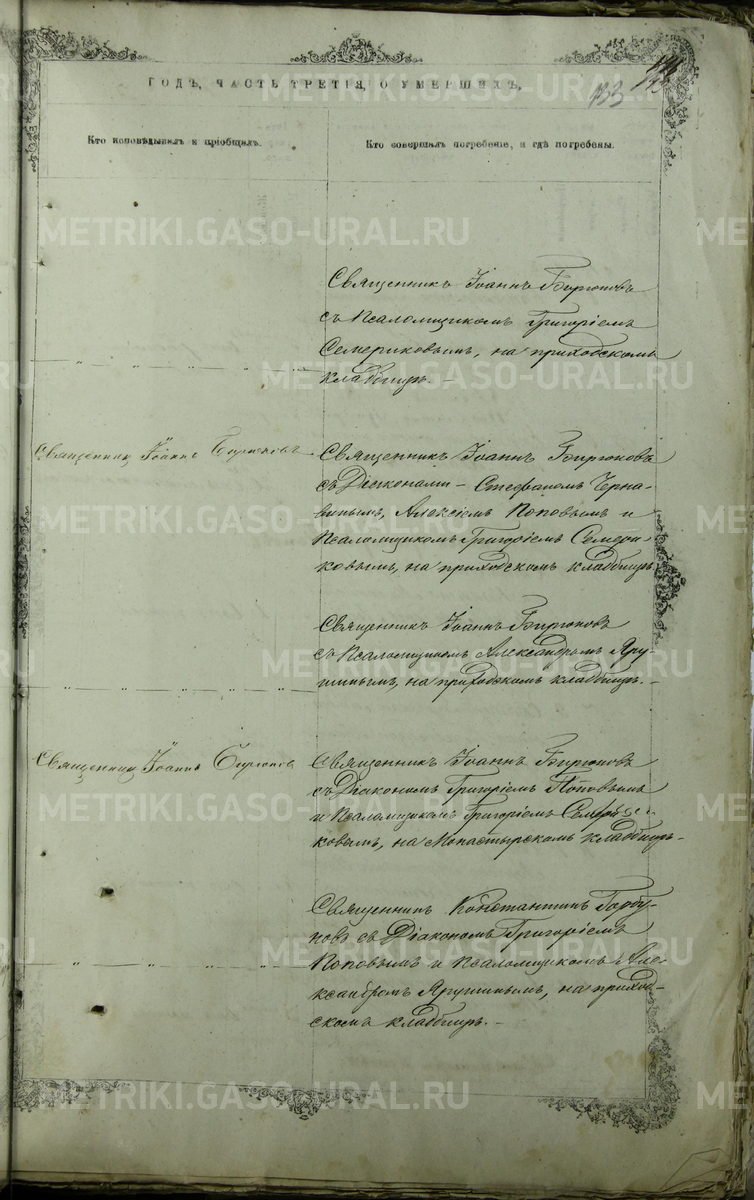 ГОДЪ, ЧАСТЬ ТРЕТІЯ, О УМЕРШИХЪ.
133
Кто исповѣдывалъ и пріобщалъ.
Кто совершалъ погребеніе, и гдѣ погребены.
METRIKI.GASO-URAL.RU
Священникъ Іоаннъ Бирюковъ
съ Псаломщикомъ Григоріемъ
Семериковымъ, на приходскомъ
кладбищѣ. –
Священникъ Іоаннъ Бирюковъ
Священникъ Іоаннъ Бирюковъ
съ Діаконами – Стефаномъ Черна-
винымъ, Алексіемъ Поповымъ и
Псаломщикомъ Григоріемъ Семери-
ковымъ, на приходскомъ кладбищѣ.
Священникъ Іоаннъ Бирюковъ
съ Псаломщикомъ Александромъ Яру-
шинымъ, на приходскомъ кладбищѣ. –
Священникъ Іоаннъ Бирюковъ
Священникъ Іоаннъ Бирюковъ
съ Діакономъ Григоріемъ Поповымъ
и Псаломщикомъ Григоріемъ Семери-
ковымъ, на Монастырскомъ кладбищѣ. –
Священникъ Константинъ Горбу-
новъ съ Діакономъ Григоріемъ
Поповымъ и Псаломщикомъ Але-
ксандромъ Ярушинымъ, на приход-
скомъ кладбищѣ. –